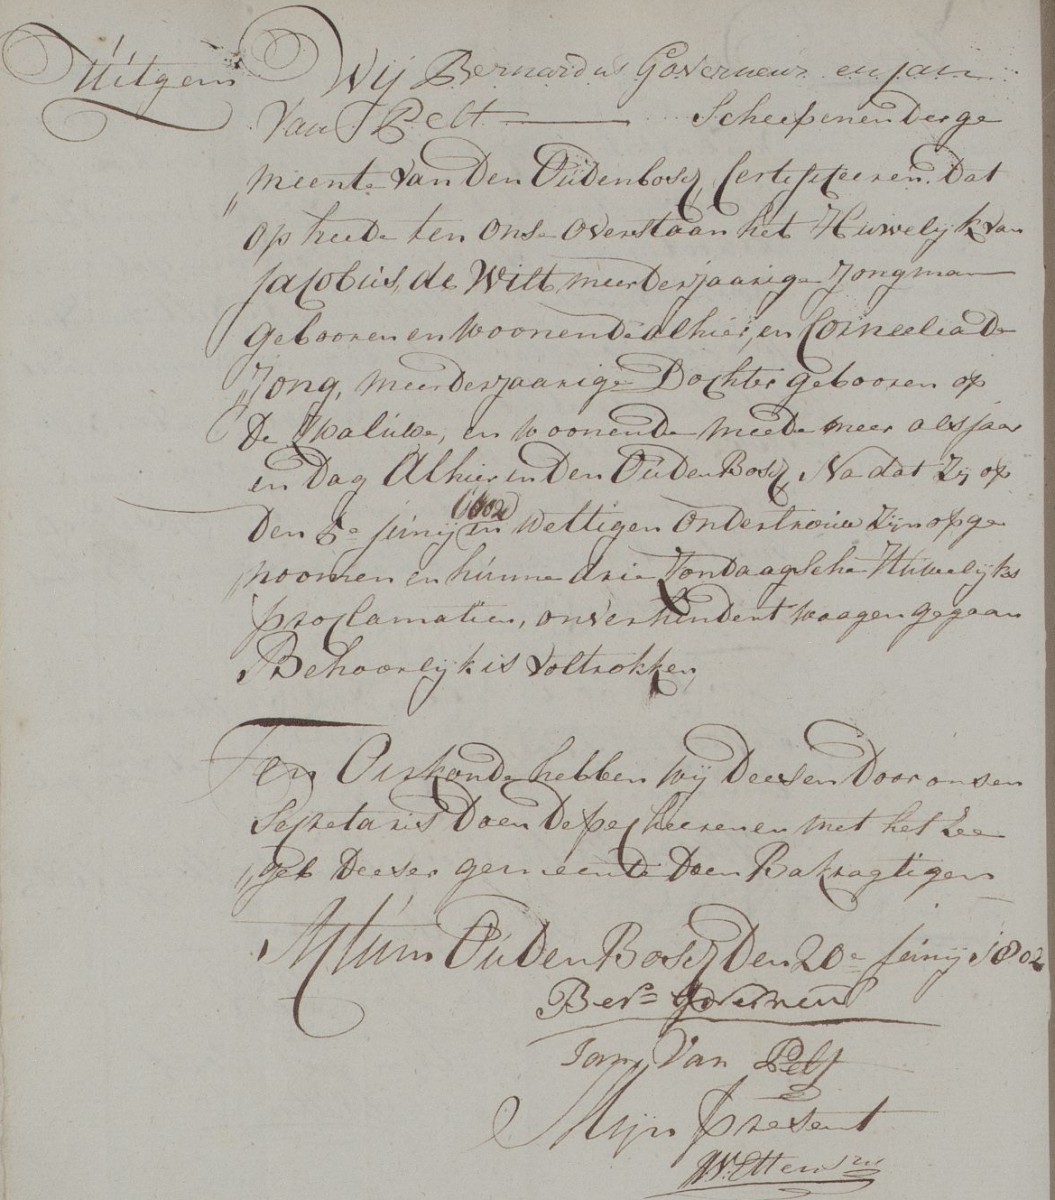 Uitgem
Wij Bernardus Governeur en Jan
Van Pelt Scheepenen der ge
„meente van den Oudenbosch, Certificeeren. dat
op heede ten onse overstaan het Huwelijk van
Jacobus, de Wilt, meerderjaarige Jongman
gebooren en woonende alhier, en Corneelia de
„Jong, meerderjaarige Dochter gebooren op
de Swaluwe, en woonende meede meer als jaar
en Dag Alhier in den OudenBosch, Na dat Zij op
den 5e Junij 1802 in wettigen ondertrouw Zijn opge
„noomen en hunne drie Zondaagsche Huwelijks
proclamatien, onverhindert waaren gegaan
Behoorlijk is Voltrokken,
Ten Oirkonde hebben wij Deesen Door onsen
Secretaris Doen Depecheeren en met het Zee
„gel Deeser gemeente Doen Bekragtigen
Actum OudenBosch Den 20e Junij 1802
Ber= Governeur
Jan Van Pelt
Mijn present
W: Etten